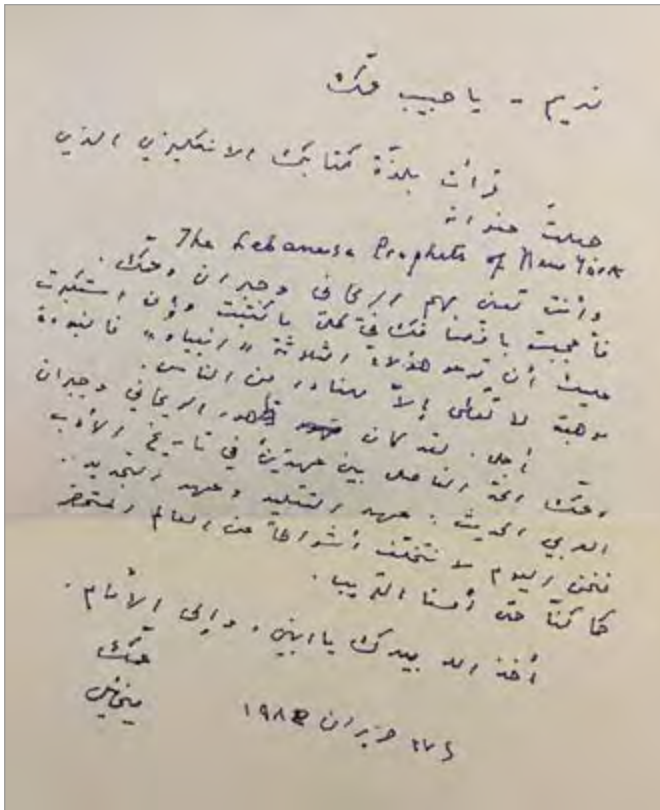 نديم - يا حبيب عمّك
قرأت بلذّة كتابك الانكليزي الذي
جعلتَ عنوانه
The Lebanese Prophets of New York
وأنت تعني بهم الريحاني وجبران وعمّك.
فأعجبت باندفاعك في كل ما كتبت وإن استكبرت
عليك أن تدعو هؤلاء الثلاثة "أنبياء" فالنبوءة
موهبة لا تُعطى إلاّ لنادر من الناس.
أجل. لقد كان ظهور الريحاني وجبران
وعمّك الحدّ الفاصل بين عهدين في تاريخ الأدب
العربي الحديث: عهد التقليد وعهد التجديد..
فنحن اليوم لا نتخلّف أشواطاً عن العالم المتحضر
كما كنّا حتى أمسنا القريب.
أخذ الله بيدك يا ابني، وإلى الأمام.
عمّك
ميخائيل
حزيران ١٩٨